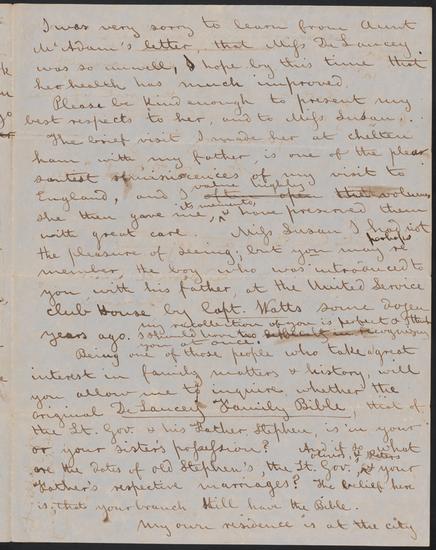 I was very sorry to learn from Aunt
McAdam's letter, that Miss De Lancey
was so unwell, I hope by this time that
her health has much improved.
Please be kind enough to present my
best respects to her, and to Miss Susan.
The brief visit I made her at Chelten
ham with my father, is one of the plea
santest reminiscences of my visit to
England, and I value highly often open the volumes
she then gave me, its minute, & have preserved them
with great care. Miss Susan I had not
the pleasure of seeing, but you may perhaps re
member, the boy who was introduced to
you, with his father, at the United Service
Club House by Capt. Watts some dozen
years ago. my recollection of you is perfect & I think
I should have no difficulty in recognizing
you at once.
Being one of those people who take a great
interest in family matters & history, will
you allow me to inquire, whether the
original De Lancey Family Bible, that of
the Lt. Gov. & his Father Stephen, is in your
or your sister's possession? And if so what
are the dates of old Stephen's, the Lt. Gov. & Peter's & your
Father's respective marriages? The belief here
is, that your branch still have the Bible.
My own residence is at the city